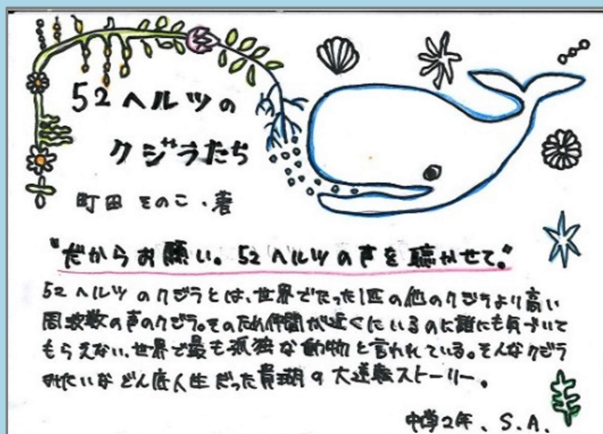 52ヘルツの
クジラたち
町田 そのこ・著
"だからお願い。52ヘルツの声を聴かせて。"
52ヘルツのクジラとは、世界でたった1匹の他のクジラより高い
周波数の声のクジラ。そのため仲間が近くにいるのに誰にも気づいて
もらえない、世界で最も孤独な動物と言われている。そんなクジラ
みたいなどん底人生だった貴瑚の大逆転ストーリー。
中学2年、S.A.